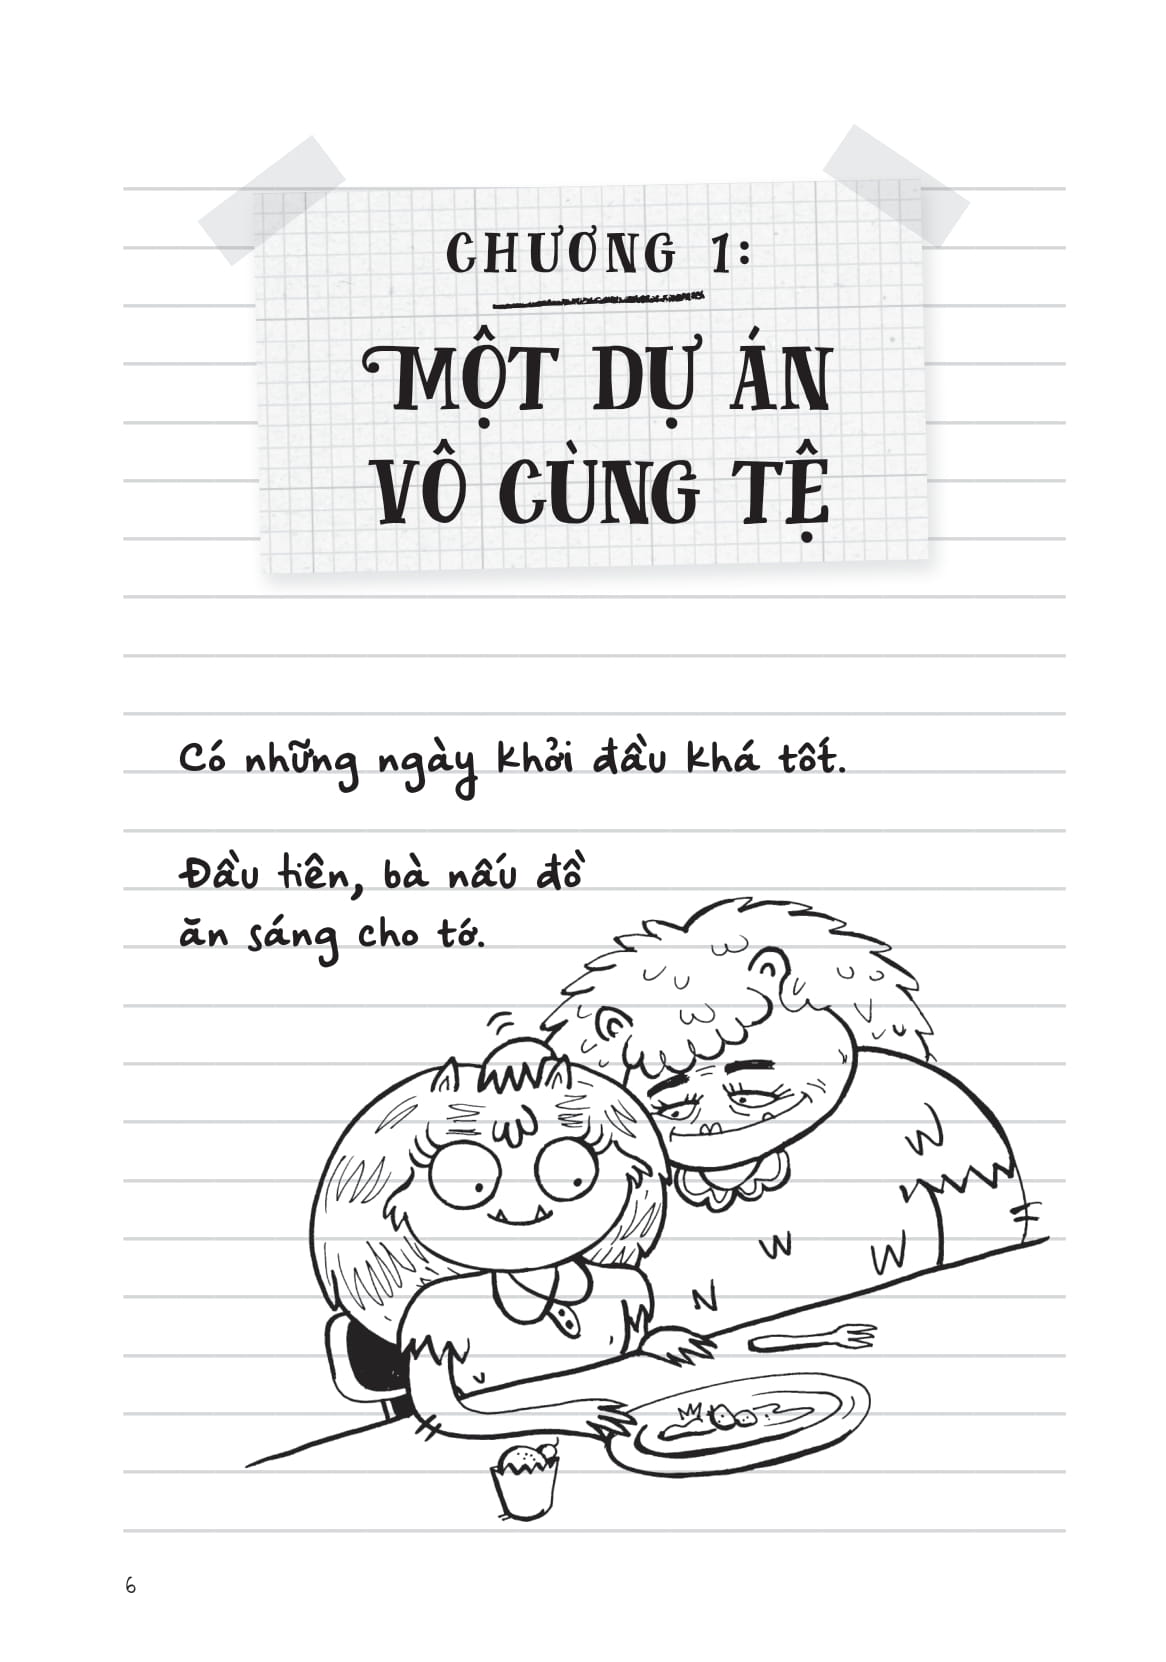 CHƯƠNG 1:
MỘT DỰ ÁN
VÔ CÙNG TỆ
Có những ngày khởi đầu khá tốt.
Đầu tiên, bà nấu đồ
ăn sáng cho tớ.
6